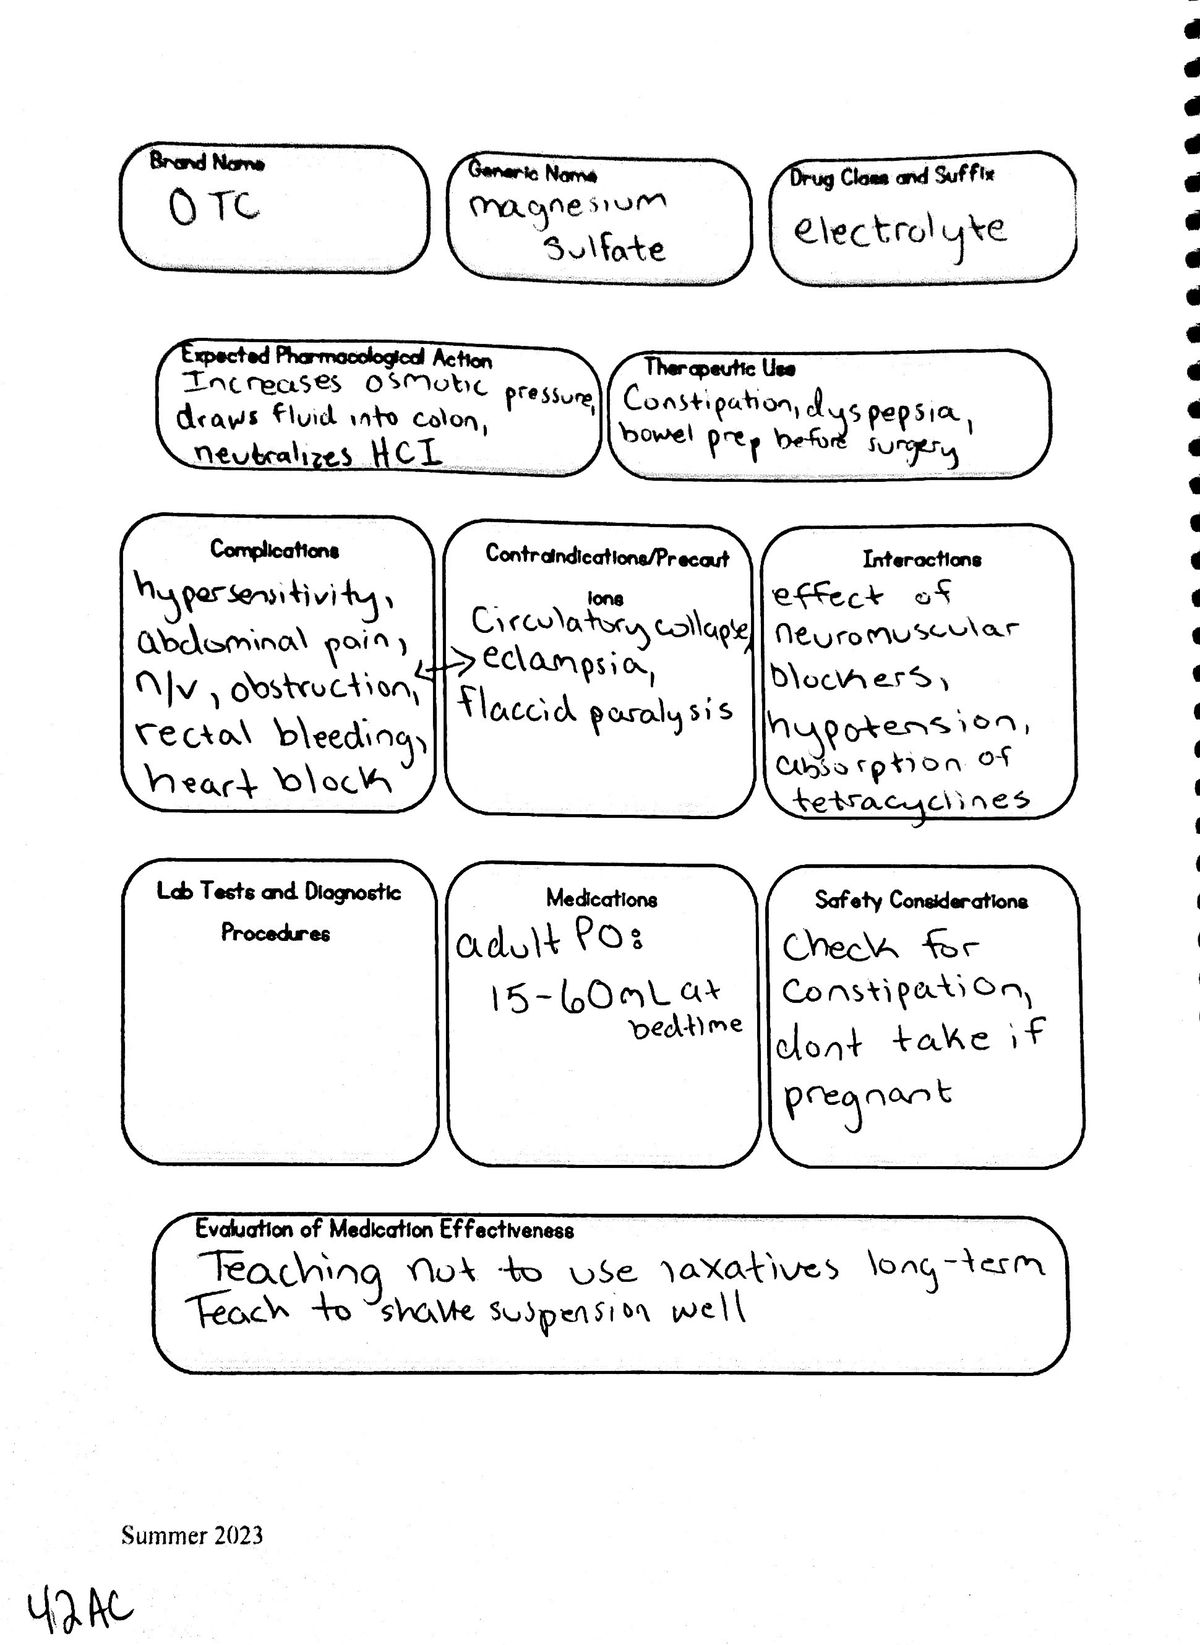 Brand Name
OTC
Generic Name
magnesium
sulfate
Drug Class and Suffix
electrolyte
Expected Pharmacological Action
Increases osmotic pressure,
draws fluid into colon,
neutralizes HCI
Therapeutic Use
Constipation, dyspepsia,
bowel prep before surgery
Complications
hypersensitivity,
abdominal pain,
n/v, obstruction,
rectal bleeding,
heart block
Contraindications/Precaut
ions
Circulatory collapse,
eclampsia,
flaccid paralysis
Interactions
effect of
neuromuscular
blockers,
hypotension,
absorption of
tetracyclines
Lab Tests and Diagnostic
Procedures
Medications
adult PO:
15-60mL at
bedtime
Safety Considerations
Check for
constipation,
dont take if
pregnant
Evaluation of Medication Effectiveness
Teaching not to use laxatives long-term
Teach to shake suspension well
Summer 2023
42AC